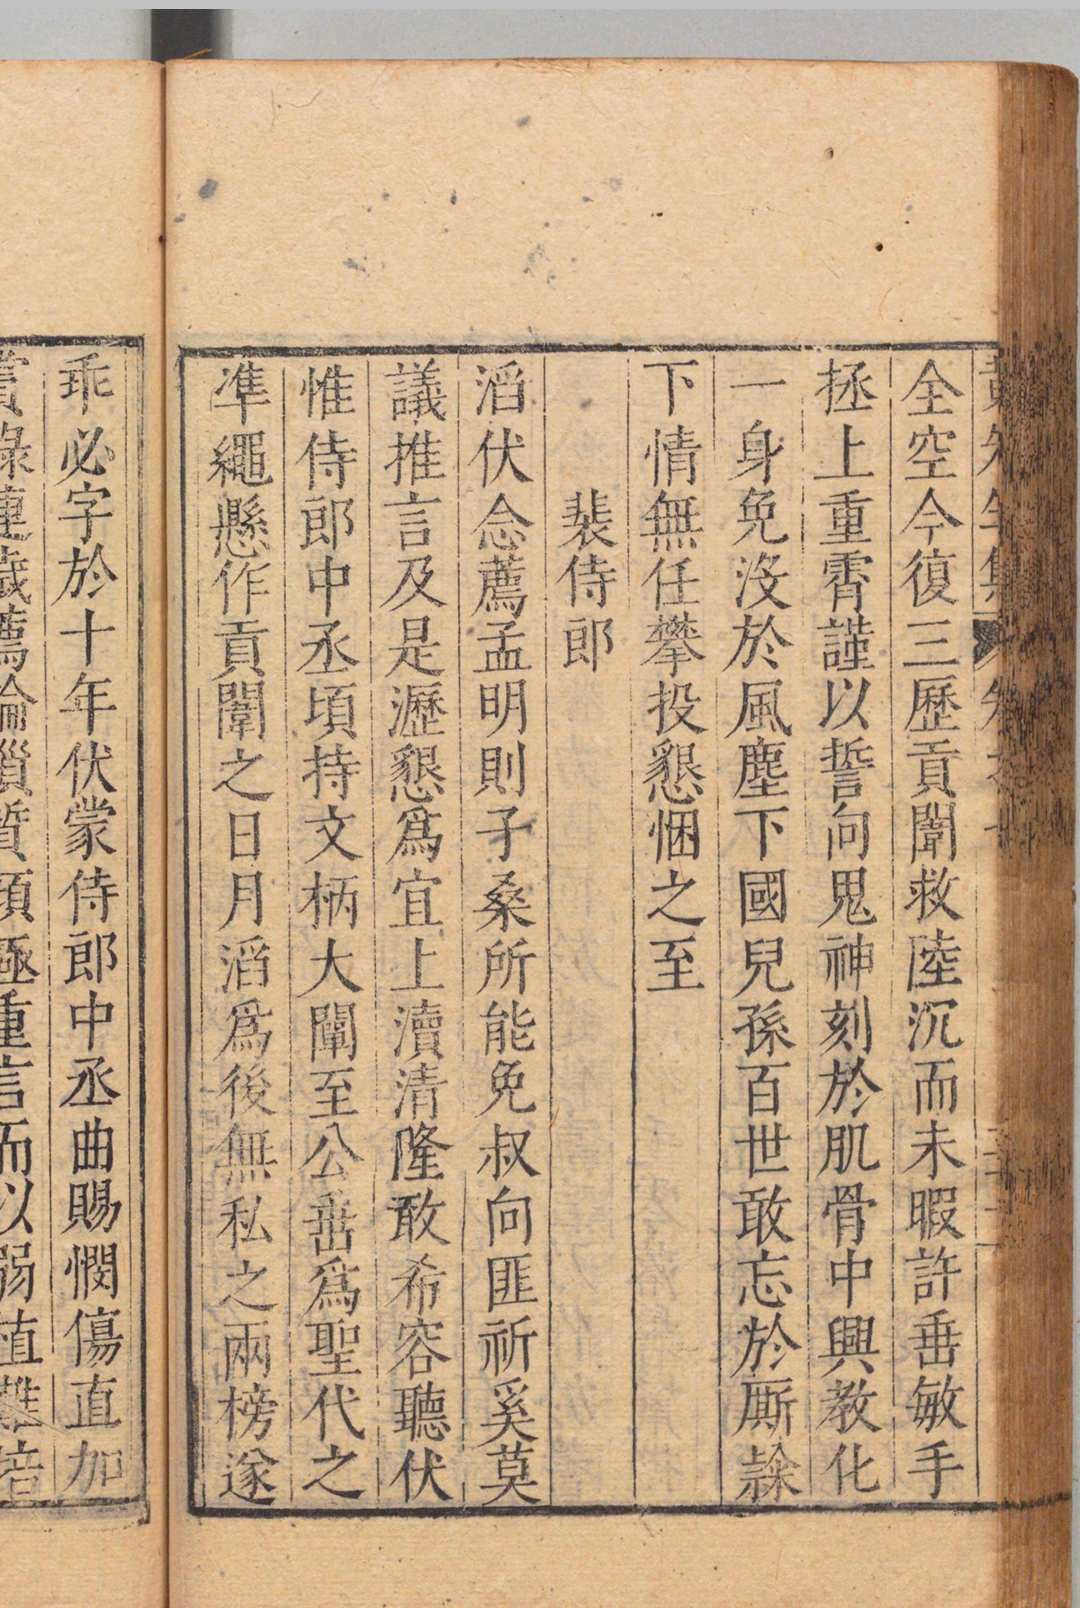 全空今復三歷貢闈救陸沉而未暇許垂敏手
拯上重霄謹以誓向鬼神刻於肌骨中興教化
一身免沒於風塵下國兒孫百世敢忘於厮隸
下情無任攀投懇悃之至
裴侍郎
滔伏念薦孟明則子桑所能免叔向匪祈奚莫
議推言及是瀝懇爲宜上瀆清隆敢希容聽伏
惟侍郎中丞頃持文柄大闡至公垂爲聖代之
準繩懸作貢闈之日月滔爲後無私之兩榜遂
乖必字於十年伏蒙侍郎中丞曲賜憫傷直加